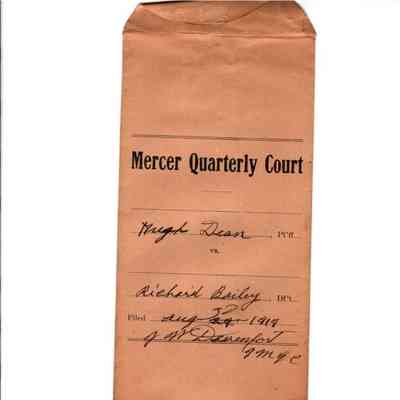 Mercer Quarterly Court
Hugh Dean, Pltff.
vs.
Richard Bailey, Dft.
Filed Aug 1919
J W Davenport
J M Q C